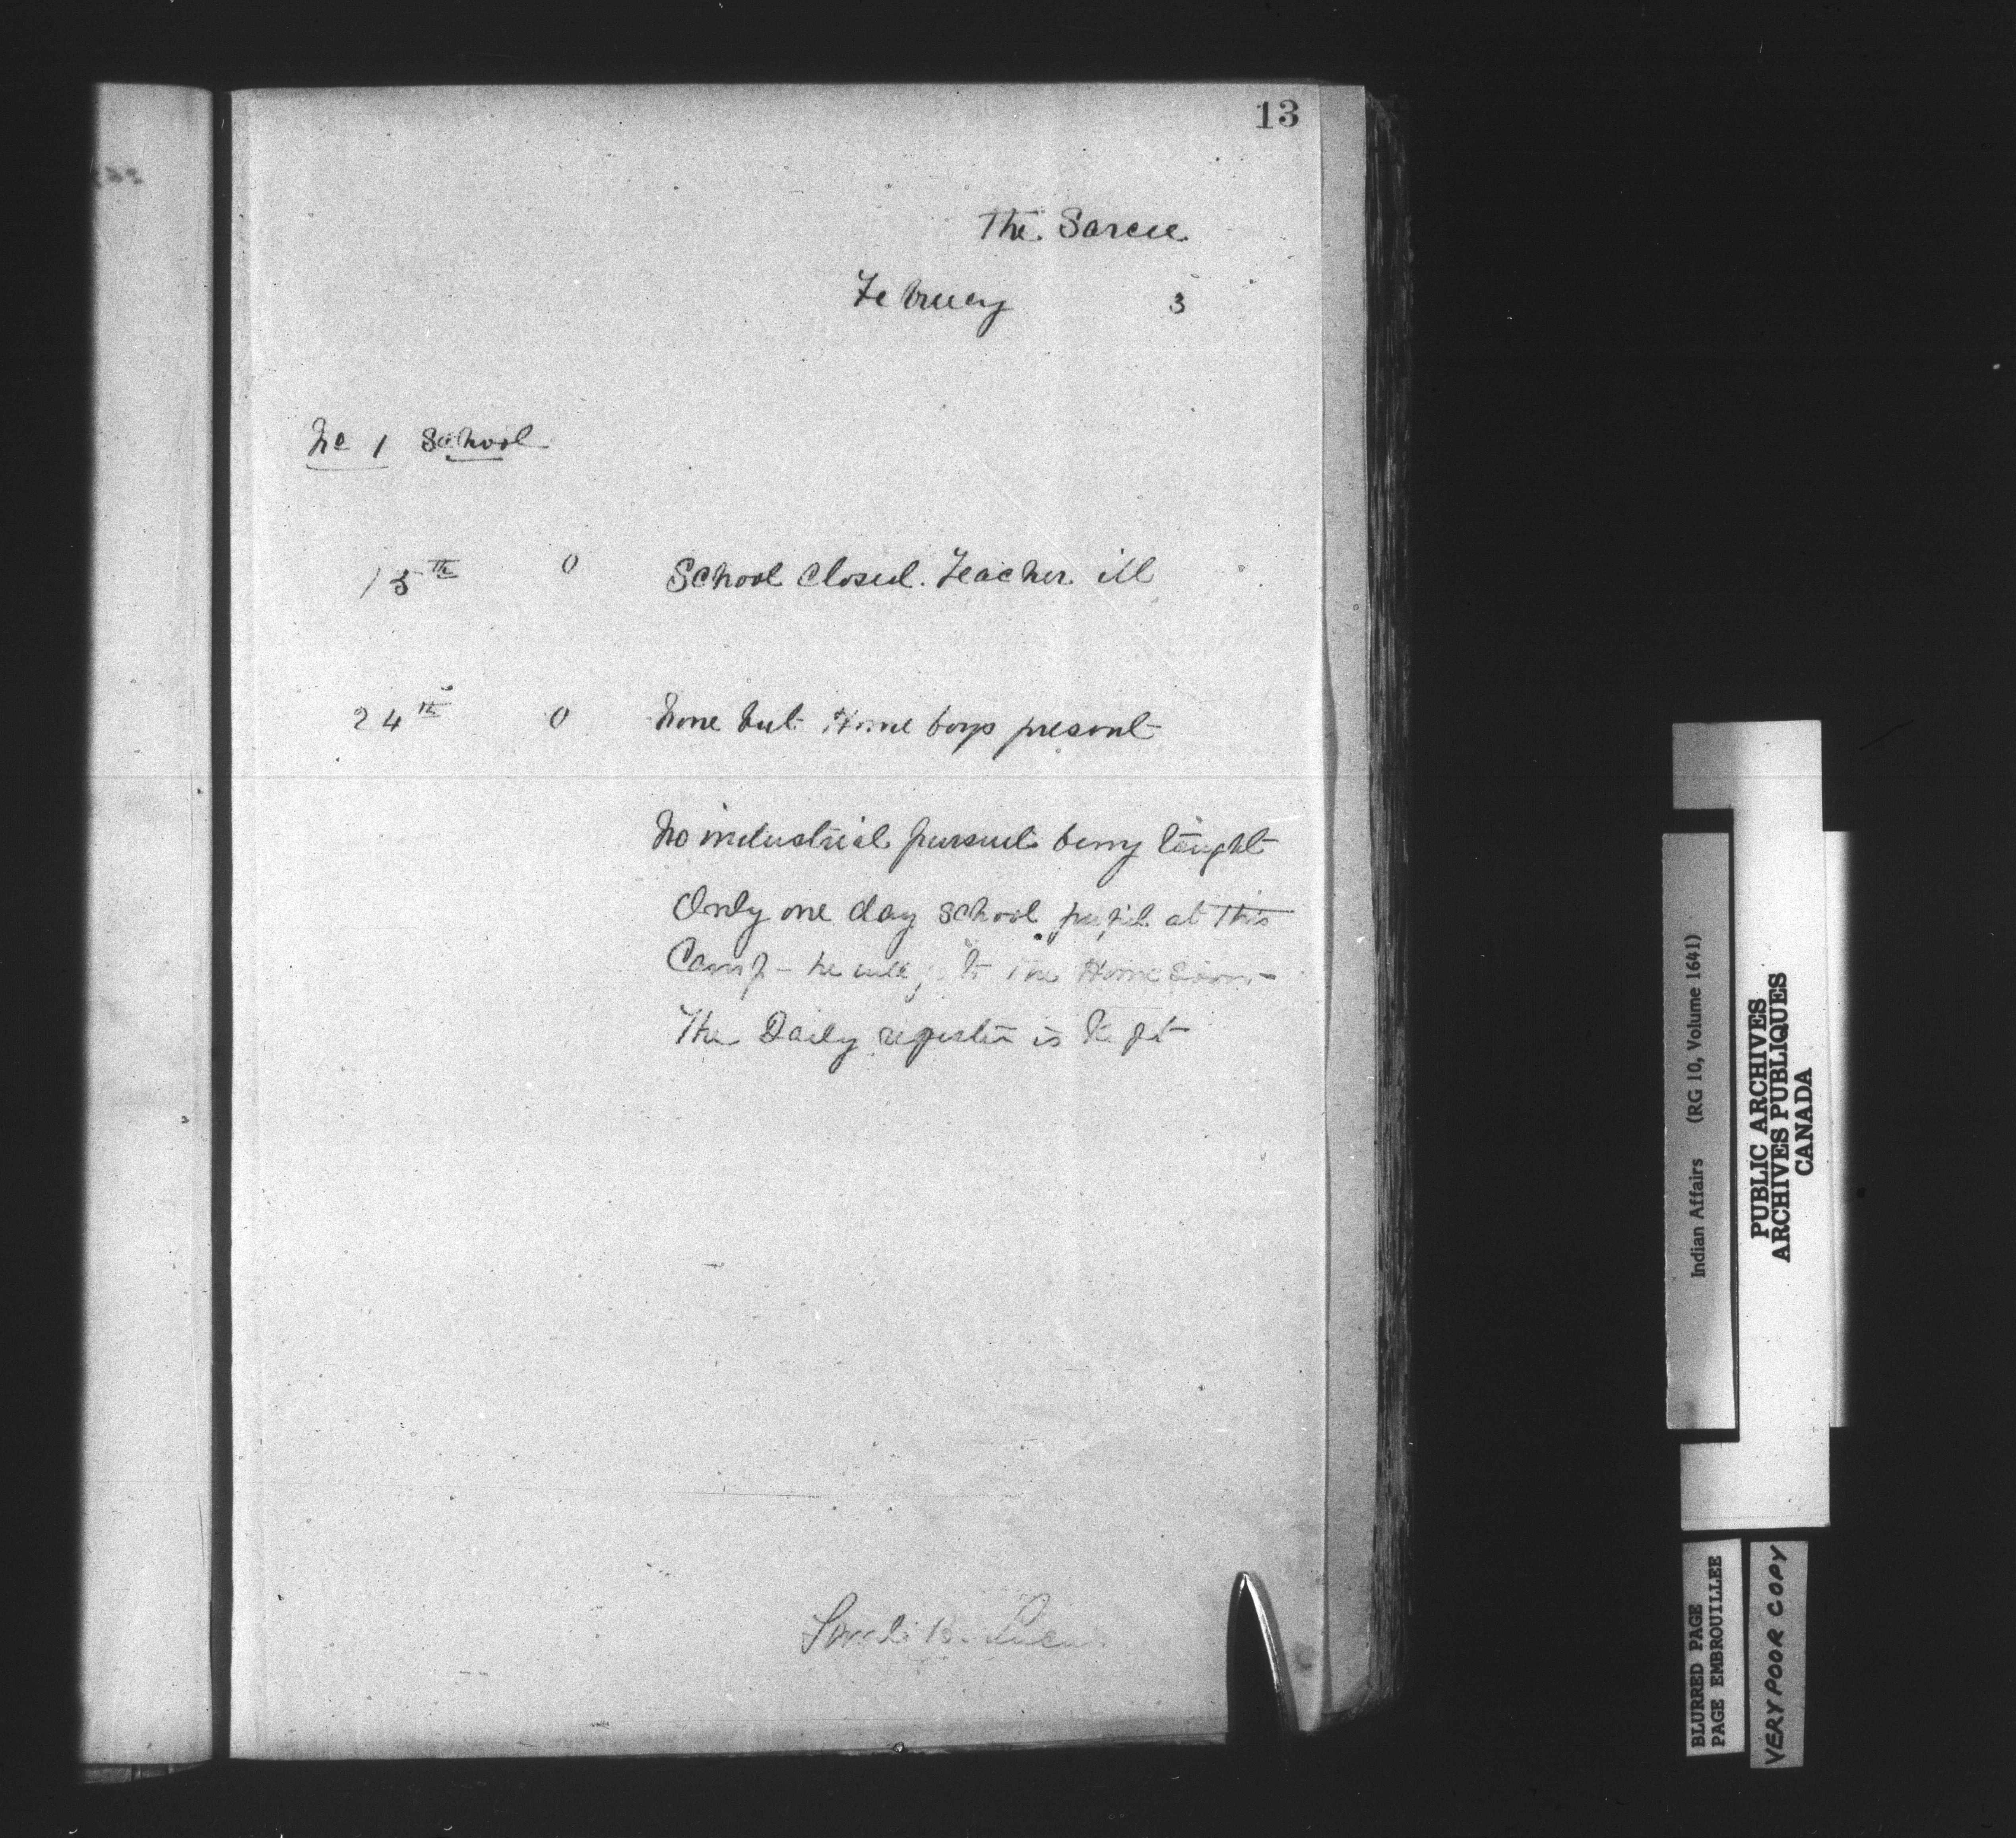 13
The Sarcee
February 3
No 1 School
15th 0 School closed. Teacher ill
24th 0 None but Home boys present
No industrial pursuit being taught
Only one day school pupil at this
Camp - he will go to the Home soon -
The Daily register is kept
Indian Affairs (RG 10, Volume 1641)
PUBLIC ARCHIVES
ARCHIVES PUBLIQUES
CANADA
BLURRED PAGE
PAGE EMBROUILLEE
VERY POOR COPY